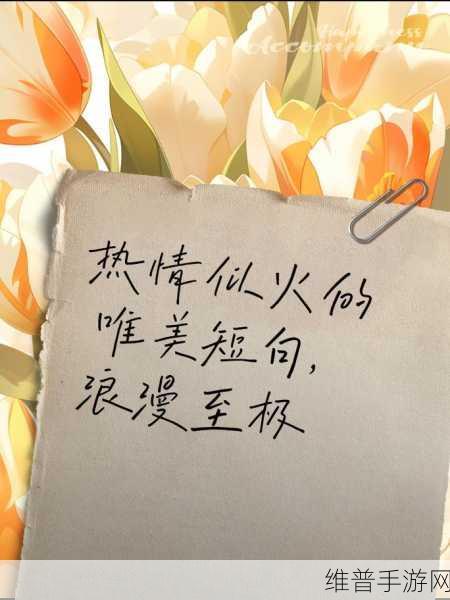 Happiness
Accompany
热情似火的
唯美短句，
浪漫至极
维普手游网